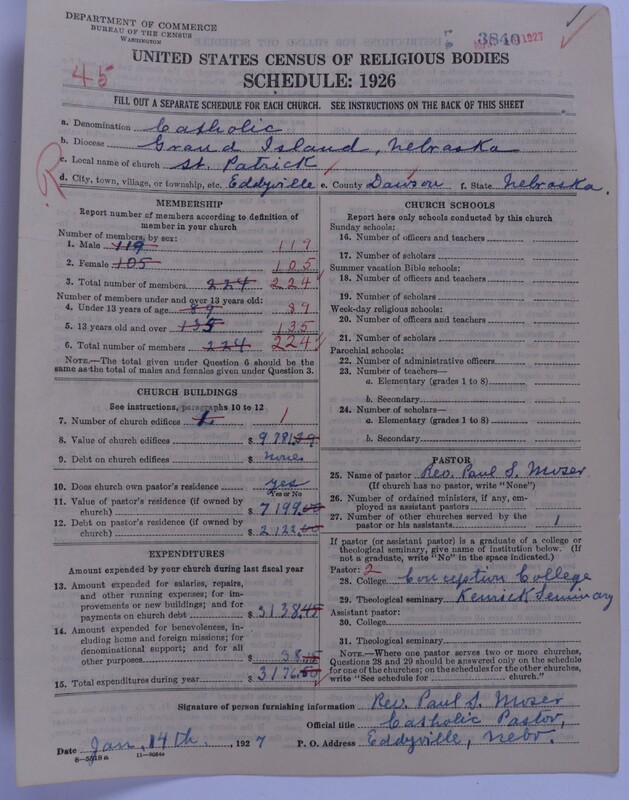 DEPARTMENT OF COMMERCE
BUREAU OF THE CENSUS
WASHINGTON
3840
1927
45
UNITED STATES CENSUS OF RELIGIOUS BODIES
SCHEDULE: 1926
FILL OUT A SEPARATE SCHEDULE FOR EACH CHURCH. SEE INSTRUCTIONS ON THE BACK OF THIS SHEET
a. Denomination Catholic
b. Diocese Grand Island, Nebraska
c. Local name of church St. Patrick
R
d. City, town, village, or township, etc. Eddyville e. County Dawson f. State Nebraska.
MEMBERSHIP
Report number of members according to definition of
member in your church
Number of members, by sex:
1. Male 119 119
2. Female 105 105
3. Total number of members 224 224
Number of members under and over 13 years old:
4. Under 13 years of age 89 89
5. 13 years old and over 135 135
6. Total number of members 224 224
NOTE.—The total given under Question 6 should be
same as the total of males and females given under Question 3.
CHURCH BUILDINGS
See instructions, paragraphs 10 to 12
7. Number of church edifices 1. 1
8. Value of church edifices $ 9781.39
9. Debt on church edifices $ none
10. Does church own pastor's residence yes
Yes or No
11. Value of pastor's residence (if owned by
church) $ 7199.00
12. Debt on pastor's residence (if owned by
church) $ 2122.00
EXPENDITURES
Amount expended by your church during last fiscal year
13. Amount expended for salaries, repairs,
and other running expenses; for im-
provements or new buildings; and for
payments on church debt $ 3138.45
14. Amount expended for benevolences, in-
cluding home and foreign missions; for
denominational support; and for all
other purposes $ 38.15
15. Total expenditures during year $ 3176.60
CHURCH SCHOOLS
Report here only schools conducted by this church
Sunday schools:
16. Number of officers and teachers
17. Number of scholars
Summer vacation Bible schools:
18. Number of officers and teachers
19. Number of scholars
Week-day religious schools:
20. Number of officers and teachers
21. Number of scholars
Parochial schools:
22. Number of administrative officers
23. Number of teachers—
a. Elementary (grades 1 to 8)
b. Secondary
24. Number of scholars—
a. Elementary (grades 1 to 8)
b. Secondary
PASTOR
25. Name of pastor Rev. Paul S. Moser
(If church has no pastor, write "None")
26. Number of ordained ministers, if any, em-
ployed as assistant pastors
27. Number of other churches served by the
pastor or his assistants 1
If pastor (or assistant pastor) is a graduate of a college or
theological seminary, give name of institution below. (If
not a graduate, write "No" in the space indicated.)
Pastor: 2
28. College Conception College
29. Theological seminary Kenrick Seminary
Assistant pastor:
30. College
31. Theological seminary
NOTE.—Where one pastor serves two or more churches,
Questions 28 and 29 should be answered only on the schedule
for one of the churches; on the schedules for the other churches,
write "See schedule for church."
Signature of person furnishing information Rev. Paul S. Moser
Official title Catholic Pastor,
Date Jan. 14th, 1927 P. O. Address Eddyville, Nebr.
8—5518 a 11—9084a